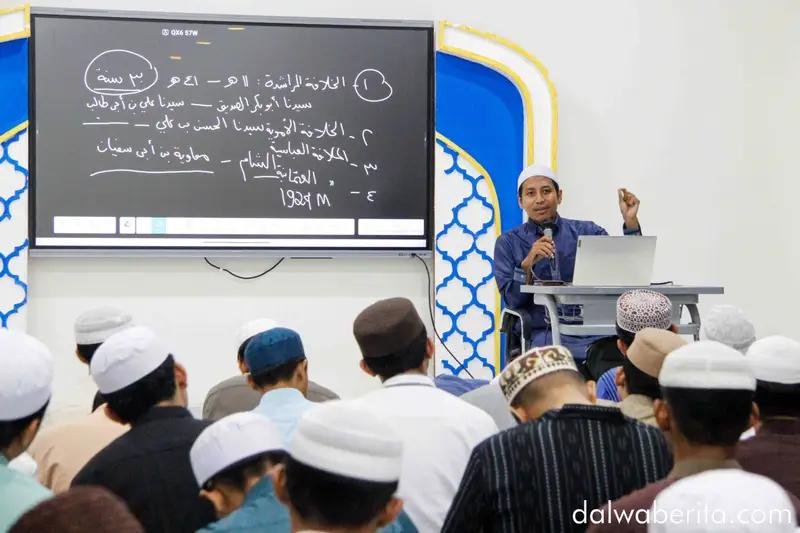 QX6 57W
١- الخلافة الراشدة: ١١ هـ - ٤١ هـ ٣٠ سنة
سيدنا أبو بكر الصديق — سيدنا علي بن أبي طالب
٢- الخلافة الأموية سيدنا الحسن بن علي
٣- الخلافة العباسية الشام - معاوية بن أبي سفيان
٤- " العثمانية
1924 M
dalwaberita.com